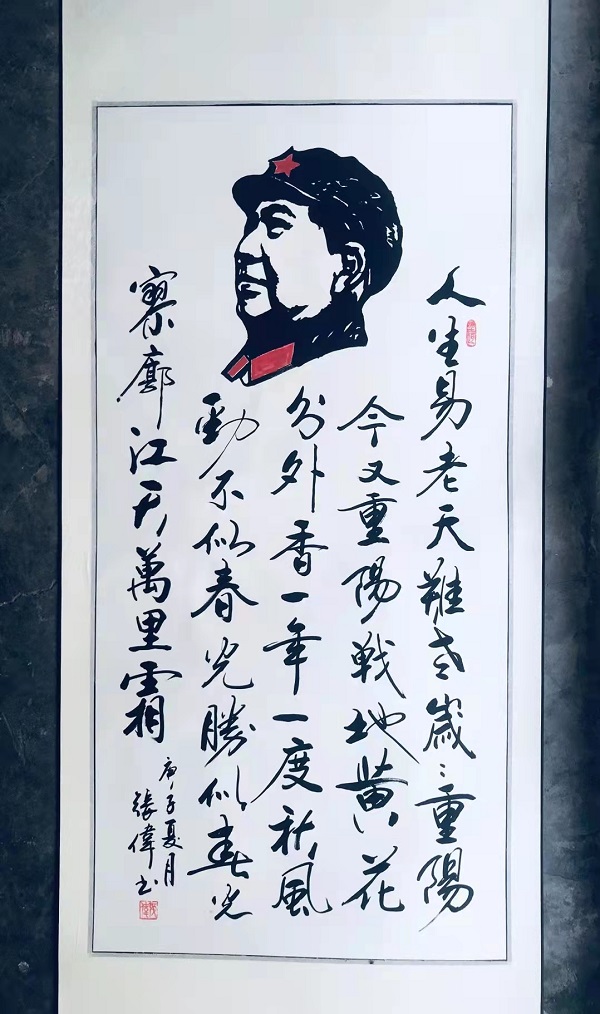 人生易老天難老歲〻重陽
今又重陽戰地黃花
分外香一年一度秋風
勁不似春光勝似春光
寥廓江天萬里霜
庚子夏月
張偉书